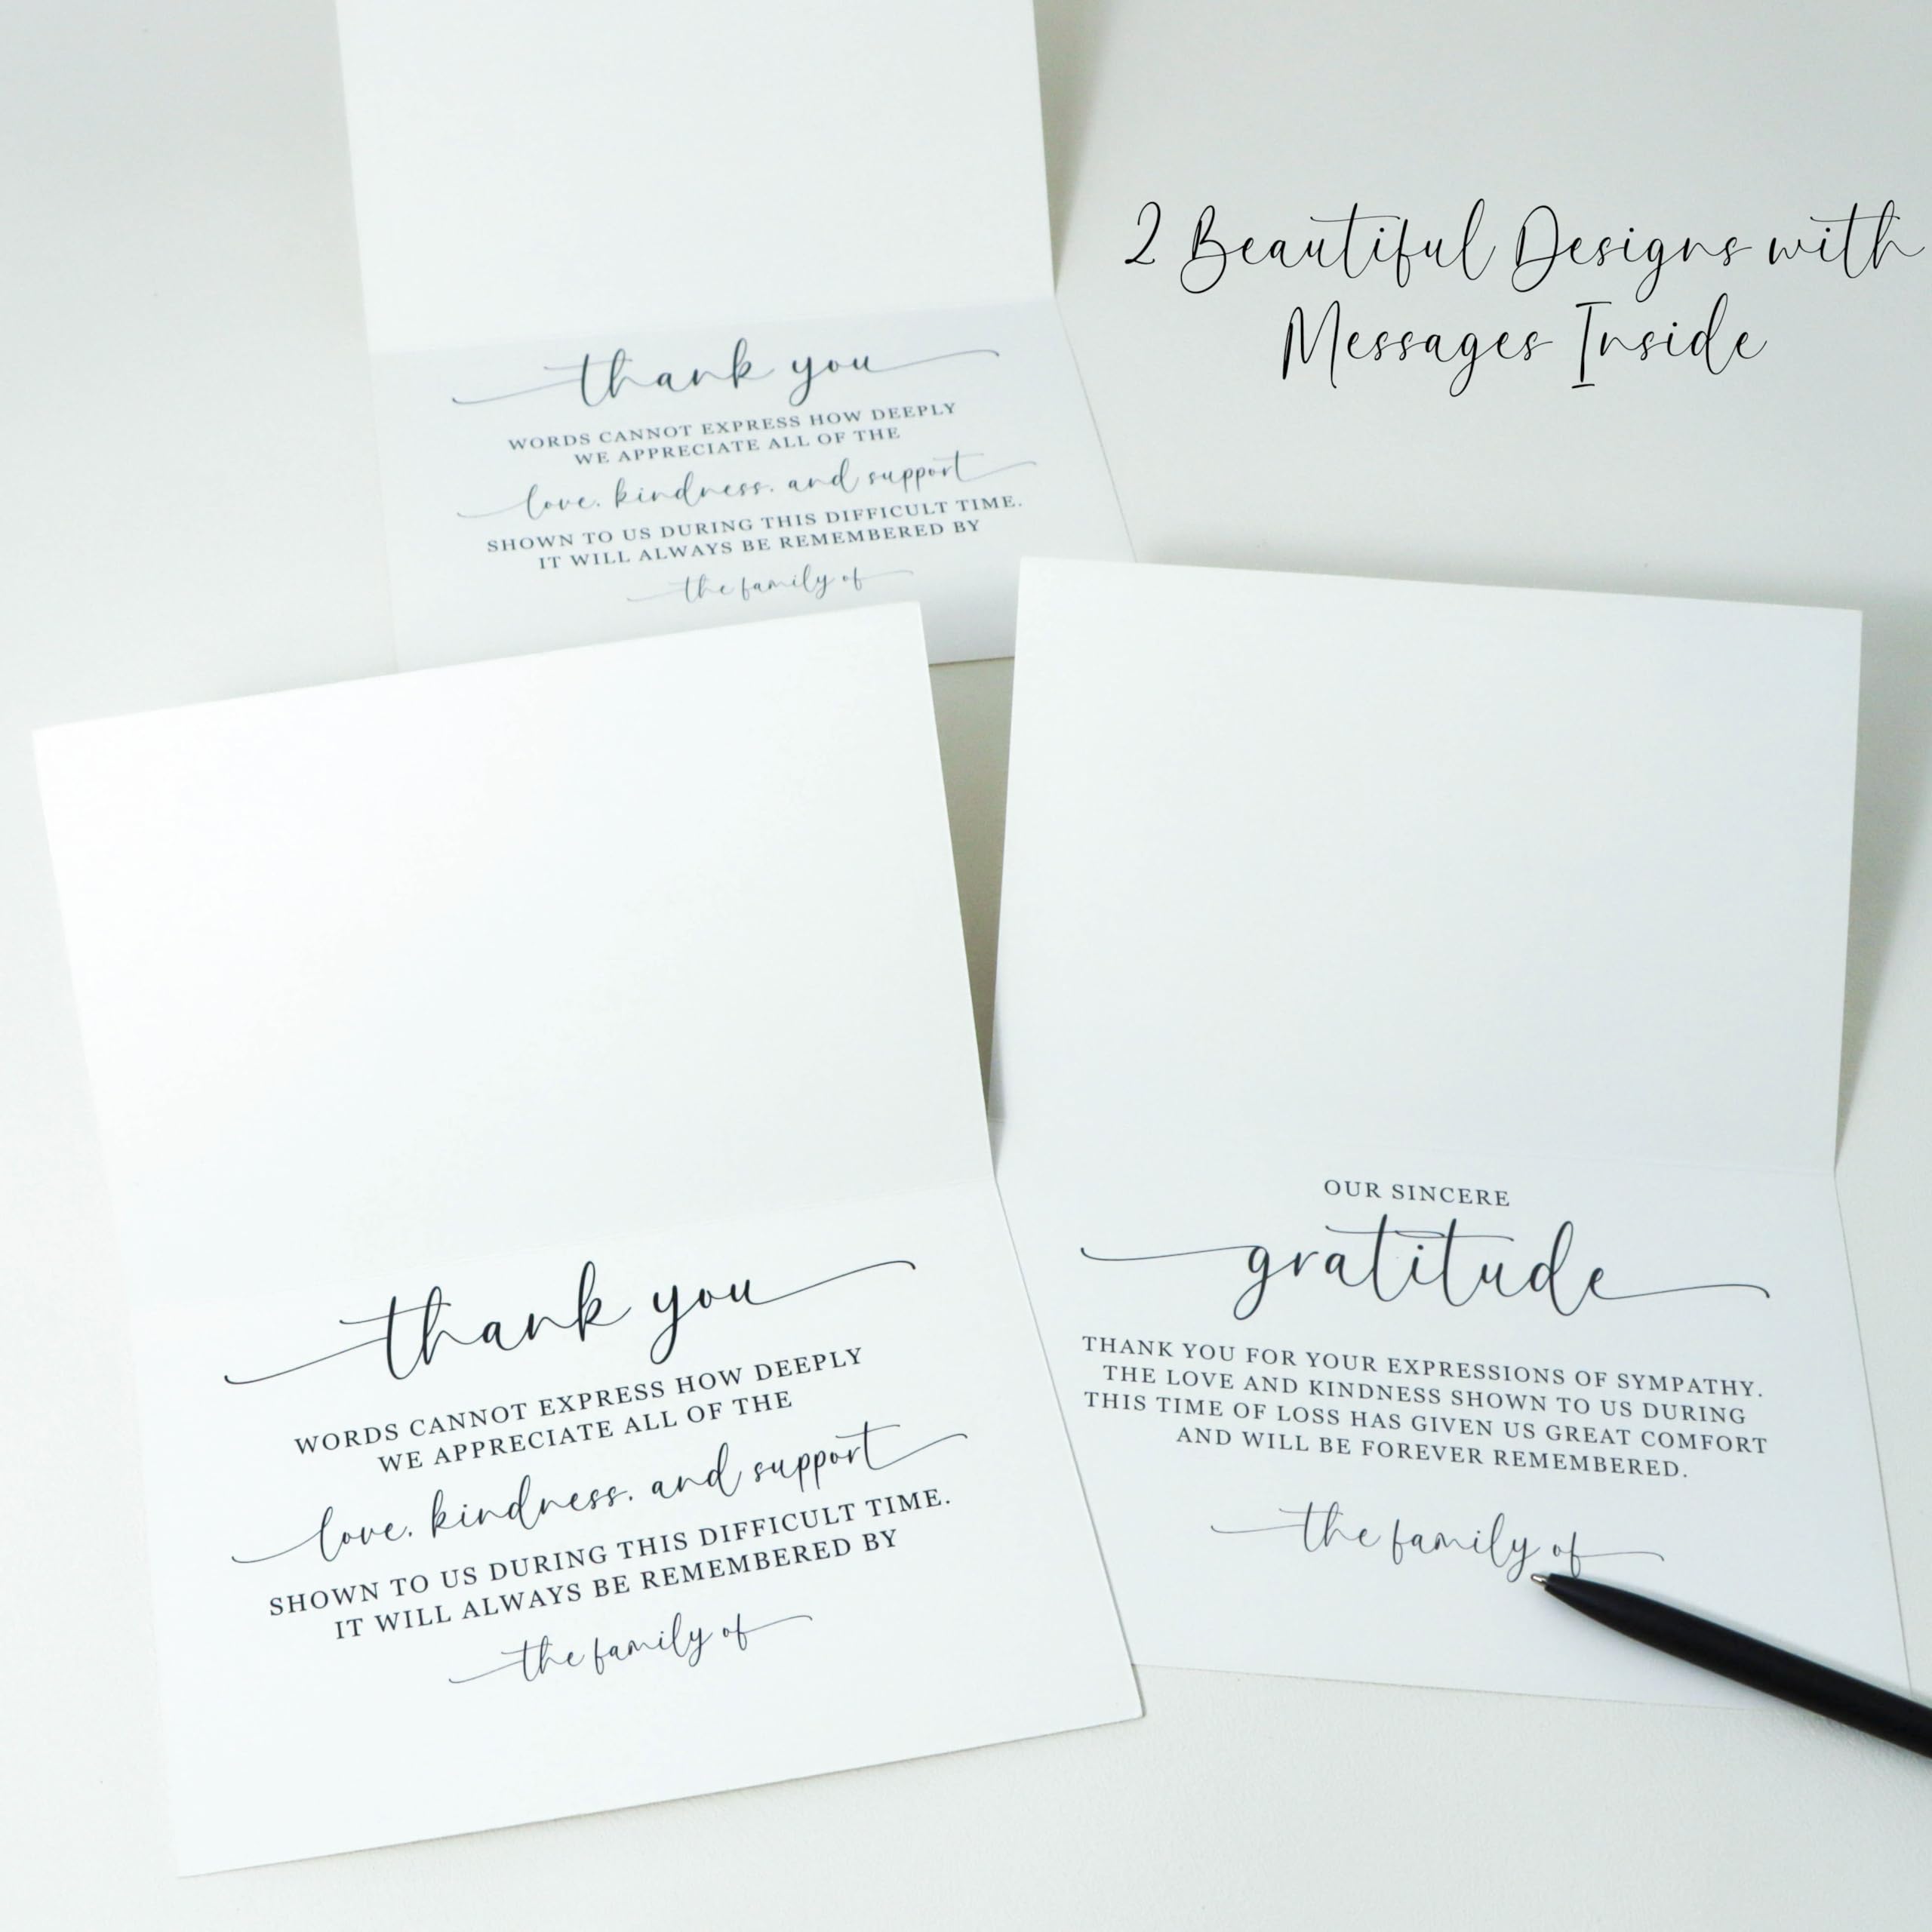 2 Beautiful Designs with
Messages Inside
thank you
WORDS CANNOT EXPRESS HOW DEEPLY
WE APPRECIATE ALL OF THE
love, kindness, and support
SHOWN TO US DURING THIS DIFFICULT TIME.
IT WILL ALWAYS BE REMEMBERED BY
the family of
thank you
WORDS CANNOT EXPRESS HOW DEEPLY
WE APPRECIATE ALL OF THE
love, kindness, and support
SHOWN TO US DURING THIS DIFFICULT TIME.
IT WILL ALWAYS BE REMEMBERED BY
the family of
OUR SINCERE
gratitude
THANK YOU FOR YOUR EXPRESSIONS OF SYMPATHY.
THE LOVE AND KINDNESS SHOWN TO US DURING
THIS TIME OF LOSS HAS GIVEN US GREAT COMFORT
AND WILL BE FOREVER REMEMBERED.
the family of